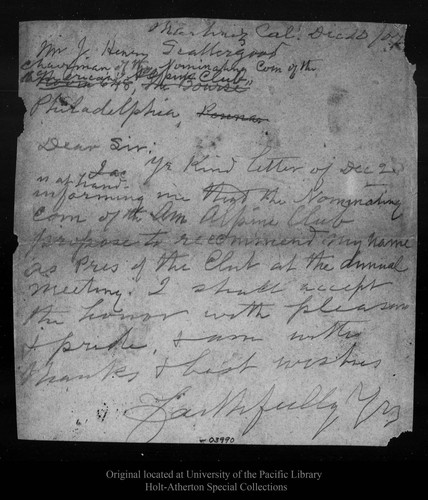 Martinez Cal. Dec 10 / 07
Mr J. Henry Scattergood
Chairman of the Nominating Com of the
American Alpine Club
648, The Bourse
Philadelphia, Penna
Dear Sir:
Yr kind letter of Dec 2
is at hand
informing me that the Nominating
Com of the Am Alpine Club
propose to recommend my name
as Pres of the Club at the annual
meeting. I shall accept
the honor with pleasure
& pride, & am with
thanks & best wishes
Faithfully Yrs
03990
Original located at University of the Pacific Library
Holt-Atherton Special Collections